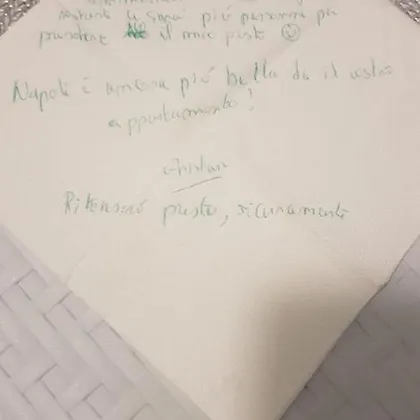 più persone per
prendere il mio posto ☺
Napoli è ancora più bella da il vostro
appartamento!
Ritornerò presto, sicuramente